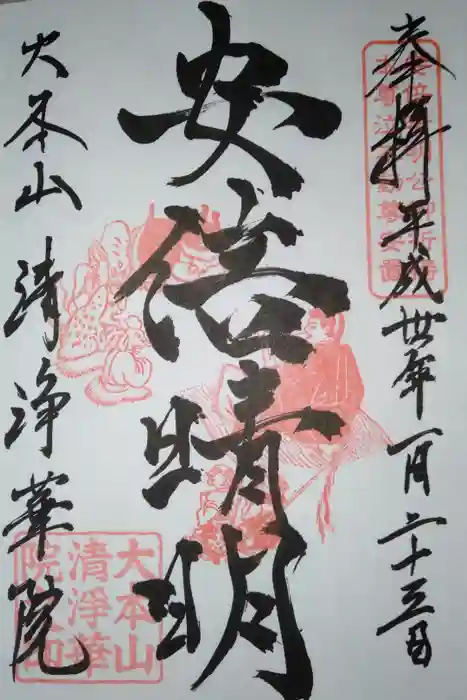 奉拝 平成卅年一月二十三日
安倍晴明
大本山 清浄華院
大本山
清淨華
院